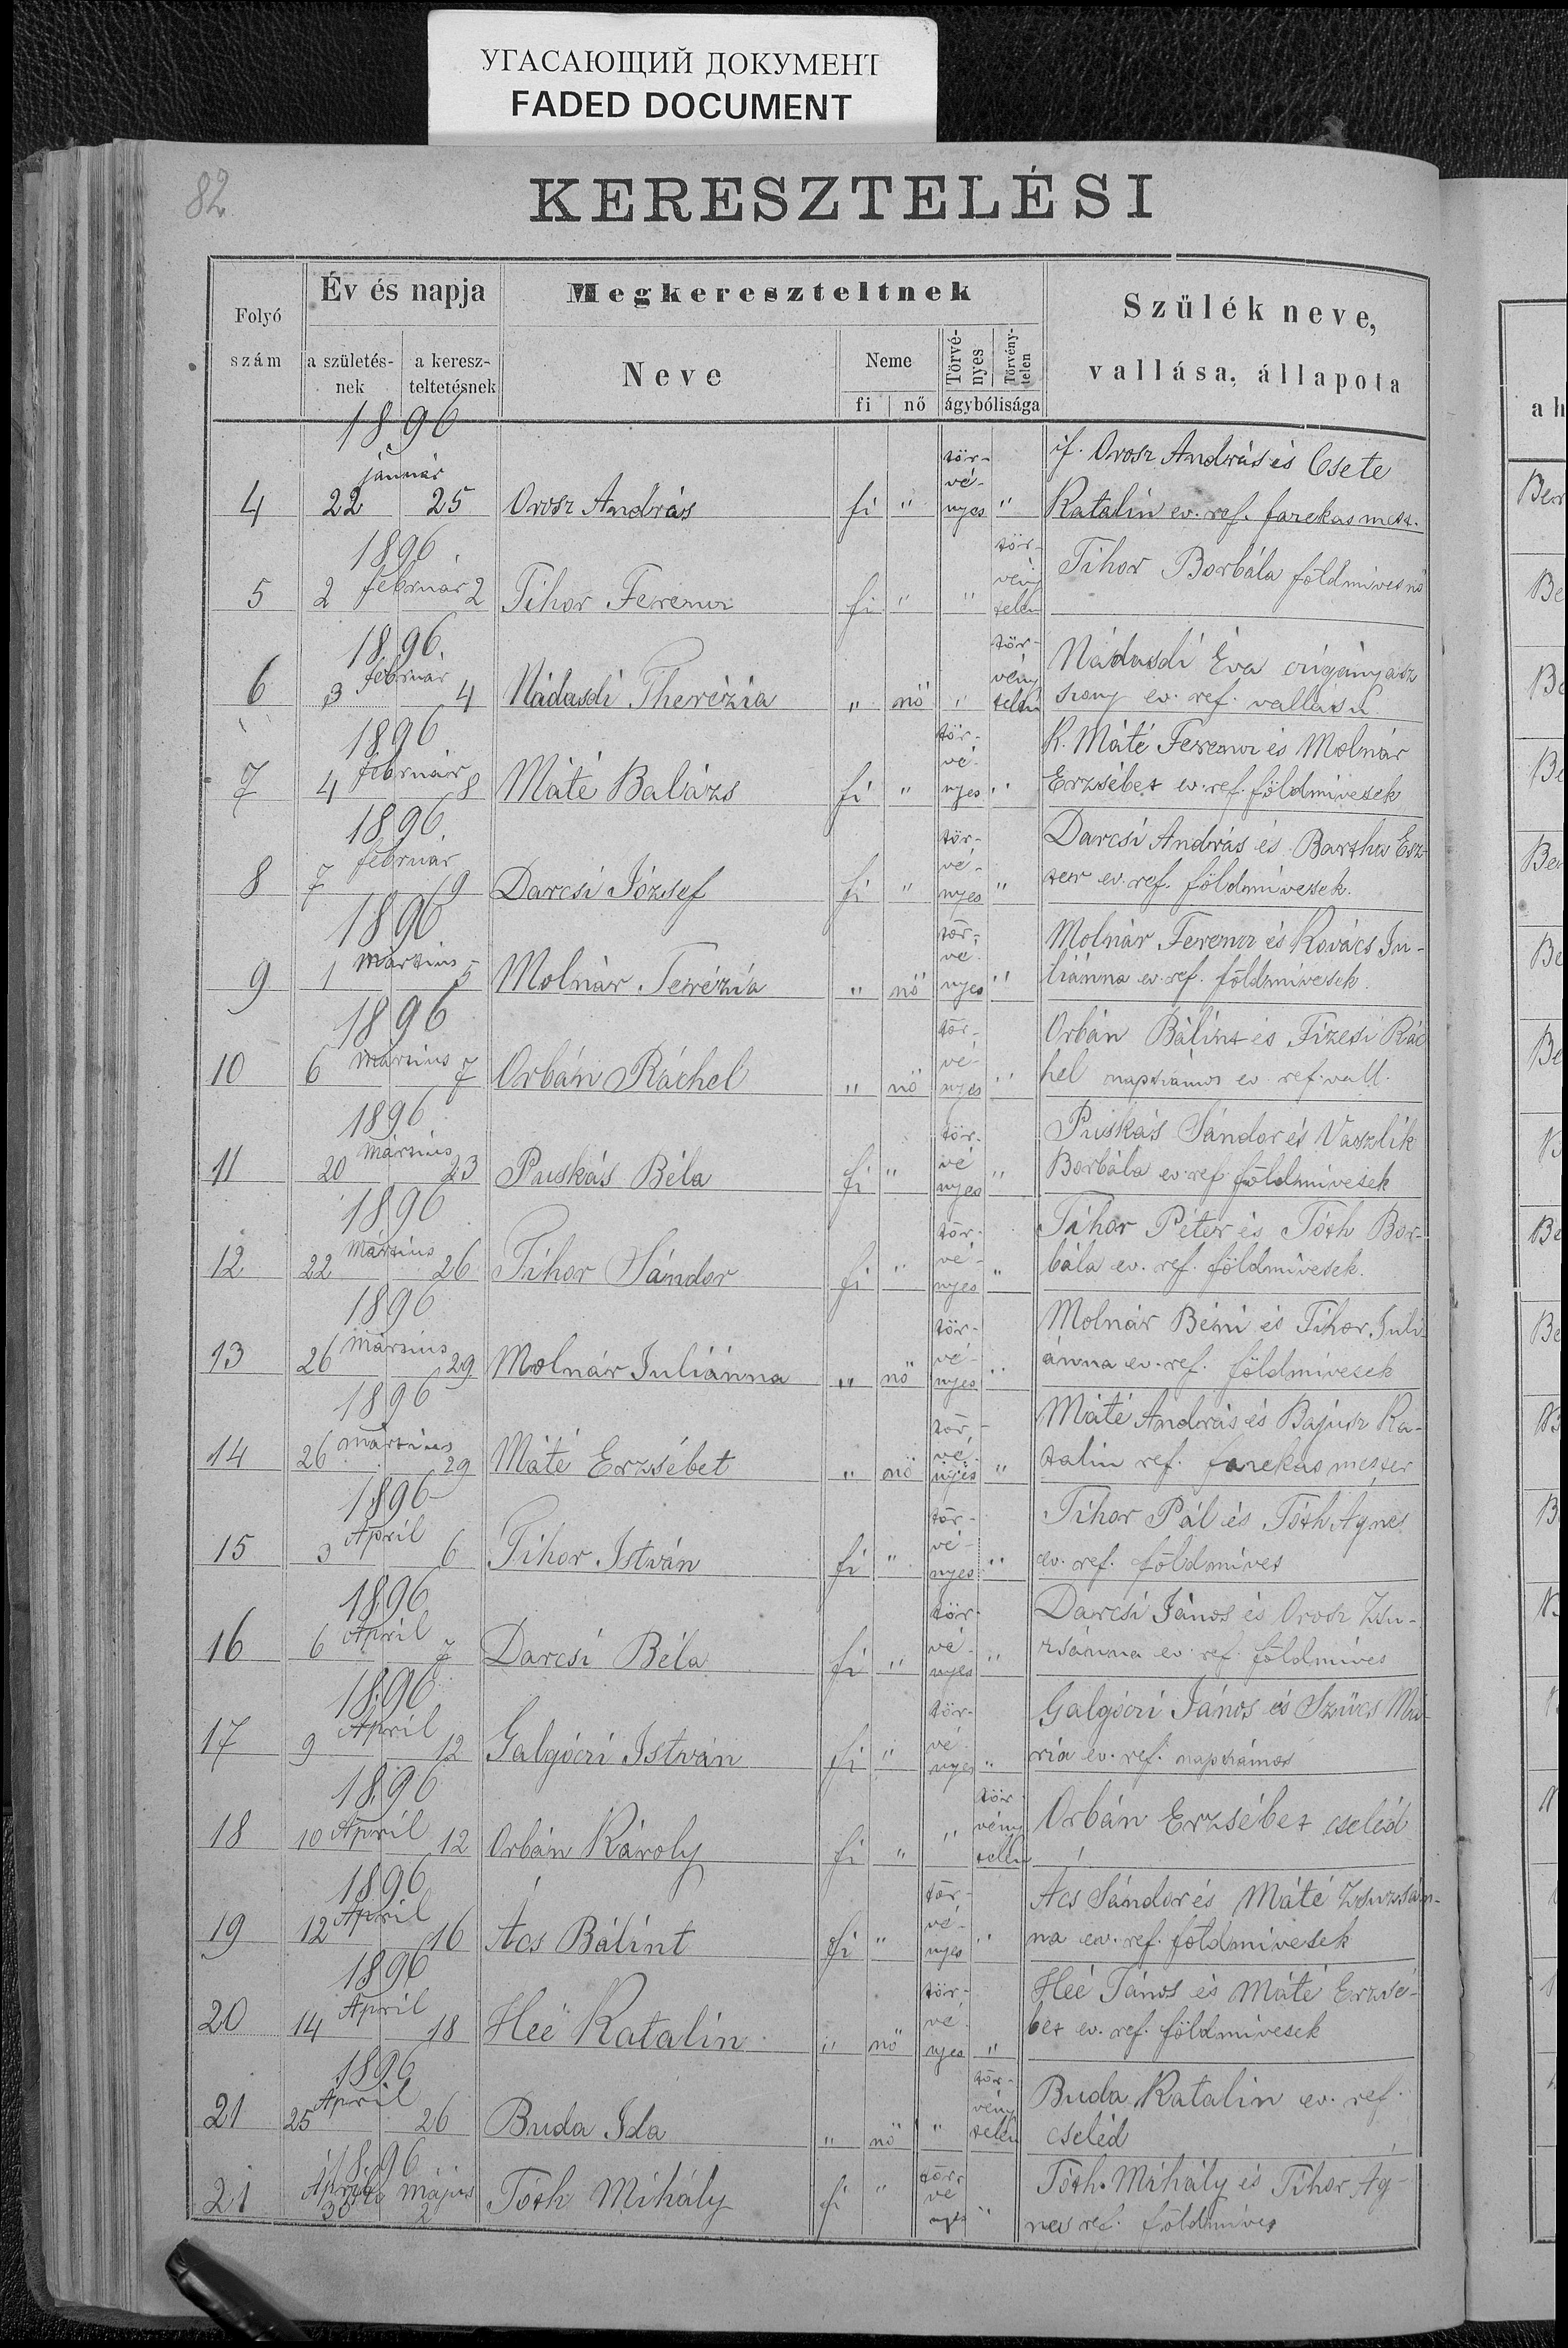 УГАСАЮЩИЙ ДОКУМЕНТ
FADED DOCUMENT
82
KERESZTELÉSI
Folyó szám
Év és napja
a születés-nek
a keresz-teltetésnek
Megkereszteltnek
Neve
Neme
fi nő
Törvé-nyes
Törvény-telen
ágybólisága
Szülék neve,
vallása, állapota
1896
január
4 22 25 Orosz András fi " tör-vé-nyes " if. Orosz András és Csete
Katalin ev. ref. farekas mest.
1896.
5 2 február 2 Tihor Ferencz fi " " tör-vény telen Tihor Borbála földmivesnő
1896.
február
6 3 4 Nádasdi Therézia " nő " tör-vény telen Nádasdi Éva czigányasz
szony ev. ref. vallásu
1896
február
7 4 8 Máté Balázs fi " tör-vé-nyes " K. Máté Ferencz és Molnár
Erzsébet ev. ref. földmivesek
1896.
február
8 7 9 Darcsi József fi " tör-vé-nyes " Darcsi András és Bartha Esz-
ter ev. ref. földmivesek.
1896
martius
9 1 5 Molnár Terézia " nő tör-vé-nyes " Molnár Ferencz és Kovács Ju-
liánna ev. ref. földmivesek.
1896
10 6 martius 7 Orbán Ráchel " nő tör-vé-nyes " Orbán Bálint és Fizesi Rác
hel napszámos ev. ref. vall.
1896
martius
11 20 23 Puskás Béla fi " tör-vé nyes " Puskás Sándor és Vaszlik
Borbála ev. ref. földmivesek
1896
martius
12 22 26 Tihor Sándor fi " tör-vé-nyes " Tihor Péter és Tóth Bor-
bála ev. ref. földmivesek.
1896
martius
13 26 29 Molnár Juliánna " nő tör-vé-nyes " Molnár Béni és Tihor Juli-
ánna ev. ref. földmivesek
1896
martius
14 26 29 Máté Erzsébet " nő tör-vé-nyes " Máté András és Bajusz Ka-
talin ref. farekas mester
1896
April
15 3 6 Tihor István fi " tör-vé-nyes " Tihor Pál és Tóth Agnes
ev. ref. földmíves
1896
April
16 6 7 Darcsi Béla fi " tör-vé-nyes " Darcsi János és Orosz Zsu-
zsánna ev. ref. földmíves
1896
April
17 9 12 Galgóczi István fi " tör-vé-nyes " Galgóczi János és Szücs Má-
ria ev. ref. napszámos
1896
18 10 April 12 Orbán Károly fi " " tör-vény telen Orbán Erzsébet cseléd
1896
April
19 12 16 Ács Bálint fi " tör-vé-nyes " Acs Sándor és Máté Zsuzsán-
na ev. ref. földmivesek
1896
April
20 14 18 Heé Katalin " nő tör-vé nyes " Heé János és Máté Erzsé-
bet ev. ref. földmivesek
1896
April
21 25 26 Buda Ida " nő " tör-vény telen Buda Katalin ev. ref.
cseléd
1896
21 April 30 Május 2 Tóth Mihály fi " törvé nyes " Tóth Mihály és Tihor Ág-
nes ref. földmíves